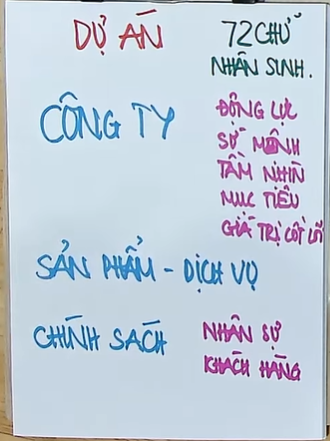 DỰ ÁN
72 CHỮ
NHÂN SINH.
CÔNG TY
ĐỘNG LỰC
SỨ MỆNH
TẦM NHÌN
MỤC TIÊU
GIÁ TRỊ CỐT LÕI
SẢN PHẨM - DỊCH VỤ
CHÍNH SÁCH
NHÂN SỰ
KHÁCH HÀNG